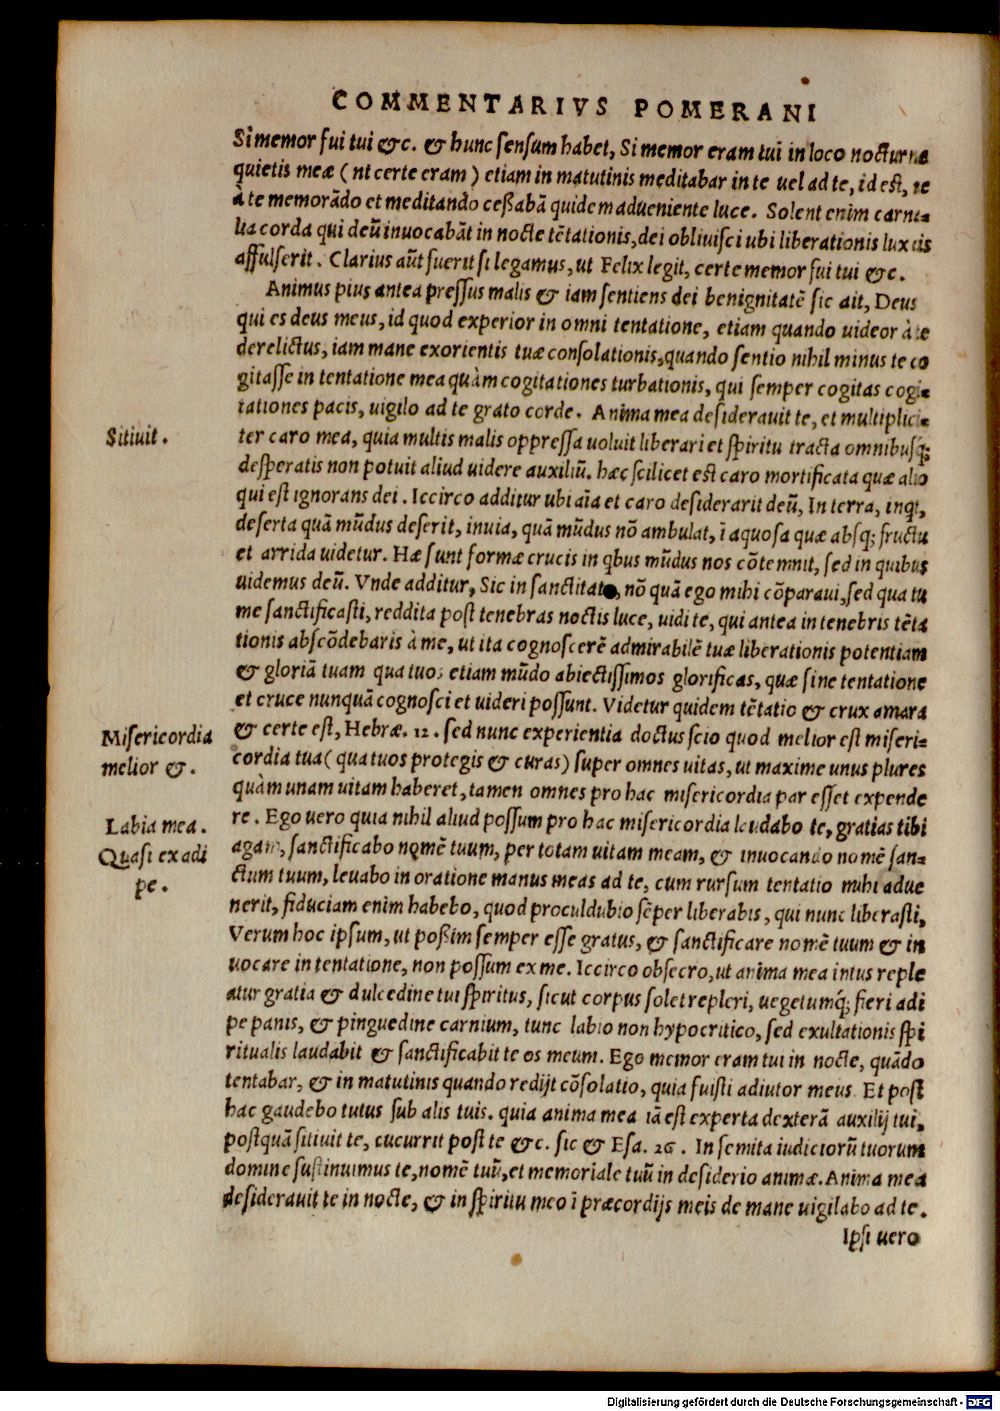 COMMENTARIVS POMERANI
Si memor fui tui &c. & hunc sensum habet, Si memor eram tui in loco nocturnæ
quietis meæ ( nt certe eram ) etiam in matutinis meditabar in te uel ad te, id est,
à te memorãdo et meditando ceßabã quidem adueniente luce. Solent enim carna=
lia corda qui deũ inuocabãt in nocte tẽtationis, dei obliuisci ubi liberationis lux eis
affulserit. Clarius aũt fuerit si legamus, ut Felix legit, certe memor fui tui &c.
Animus pius antea pressus malis & iam sentiens dei benignitatẽ sic ait, Deus
qui es deus meus, id quod experior in omni tentatione, etiam quando uideor à te
derelictus, iam mane exorientis tuæ consolationis, quando sentio nihil minus te co
gitasse in tentatione mea quàm cogitationes turbationis, qui semper cogitas cogi=
tationes pacis, uigilo ad te grato corde. Anima mea desiderauit te, et multiplici=
Sitiuit.
ter caro mea, quia multis malis oppressa uoluit liberari et spiritu tracta omnibusq;
desperatis non potuit aliud uidere auxiliũ. hæc scilicet est caro mortificata quæ alio
qui est ignorans dei. Iccirco additur ubi aĩa et caro desiderarit deũ, In terra, inqt,
deserta quã mũdus deserit, inuia, quã mũdus nõ ambulat, ĩ aquosa quæ absq; fructu
et arrida uidetur. Hæ sunt formæ crucis in qbus mũdus nos cõtemnit, sed in quibus
uidemus deũ. Vnde additur, Sic in sanctitate, nõ quã ego mihi cõparaui, sed qua tu
me sanctificasti, reddita post tenebras noctis luce, uidi te, qui antea in tenebris tẽta
tionis abscõdebaris à me, ut ita cognoscerẽ admirabilẽ tuæ liberationis potentiam
& gloriã tuam qua tuos etiam mũdo abiectissimos glorificas, quæ sine tentatione
et cruce nunquã cognosci et uideri possunt. Videtur quidem tẽtatio & crux amara
Misericordia
melior &.
& certe est, Hebræ. 12. sed nunc experientia doctus scio quod melior est miseri=
cordia tua ( qua tuos protegis & curas ) super omnes uitas, ut maxime unus plures
quàm unam uitam haberet, tamen omnes pro hac misericordia par esset expende
Labia mea.
re. Ego uero quia nihil aliud possum pro hac misericordia laudabo te, gratias tibi
Quasi ex adi
pe.
agam, sanctificabo nomẽ tuum, per totam uitam meam, & inuocando nomẽ san=
ctum tuum, leuabo in oratione manus meas ad te, cum rursum tentatio mihi adue
nerit, fiduciam enim habebo, quod proculdubio sẽper liberabis, qui nunc liberasti,
Verum hoc ipsum, ut poßim semper esse gratus, & sanctificare nomẽ tuum & in
uocare in tentatione, non possum ex me. Iccirco obsecro, ut anima mea intus reple
atur gratia & dulcedine tui spiritus, sicut corpus solet repleri, uegetumq; fieri adi
pe panis, & pinguedine carnium, tunc labio non hypocritico, sed exultationis spi
ritualis laudabit & sanctificabit te os meum. Ego memor eram tui in nocte, quãdo
tentabar, & in matutinis quando redijt cõsolatio, quia fuisti adiutor meus. Et post
hac gaudebo tutus sub alis tuis. quia anima mea iã est experta dexterã auxilij tui,
postquã sitiuit te, cucurrit post te &c. sic & Esa. 26. In semita iudiciorũ tuorum
domine sustinuimus te, nomẽ tuũ, et memoriale tuũ in desiderio animæ. Anima mea
desiderauit te in nocte, & in spiritu meo ĩ præcordijs meis de mane uigilabo ad te.
Ipsi uero
Digitalisierung gefördert durch die Deutsche Forschungsgemeinschaft - DFG